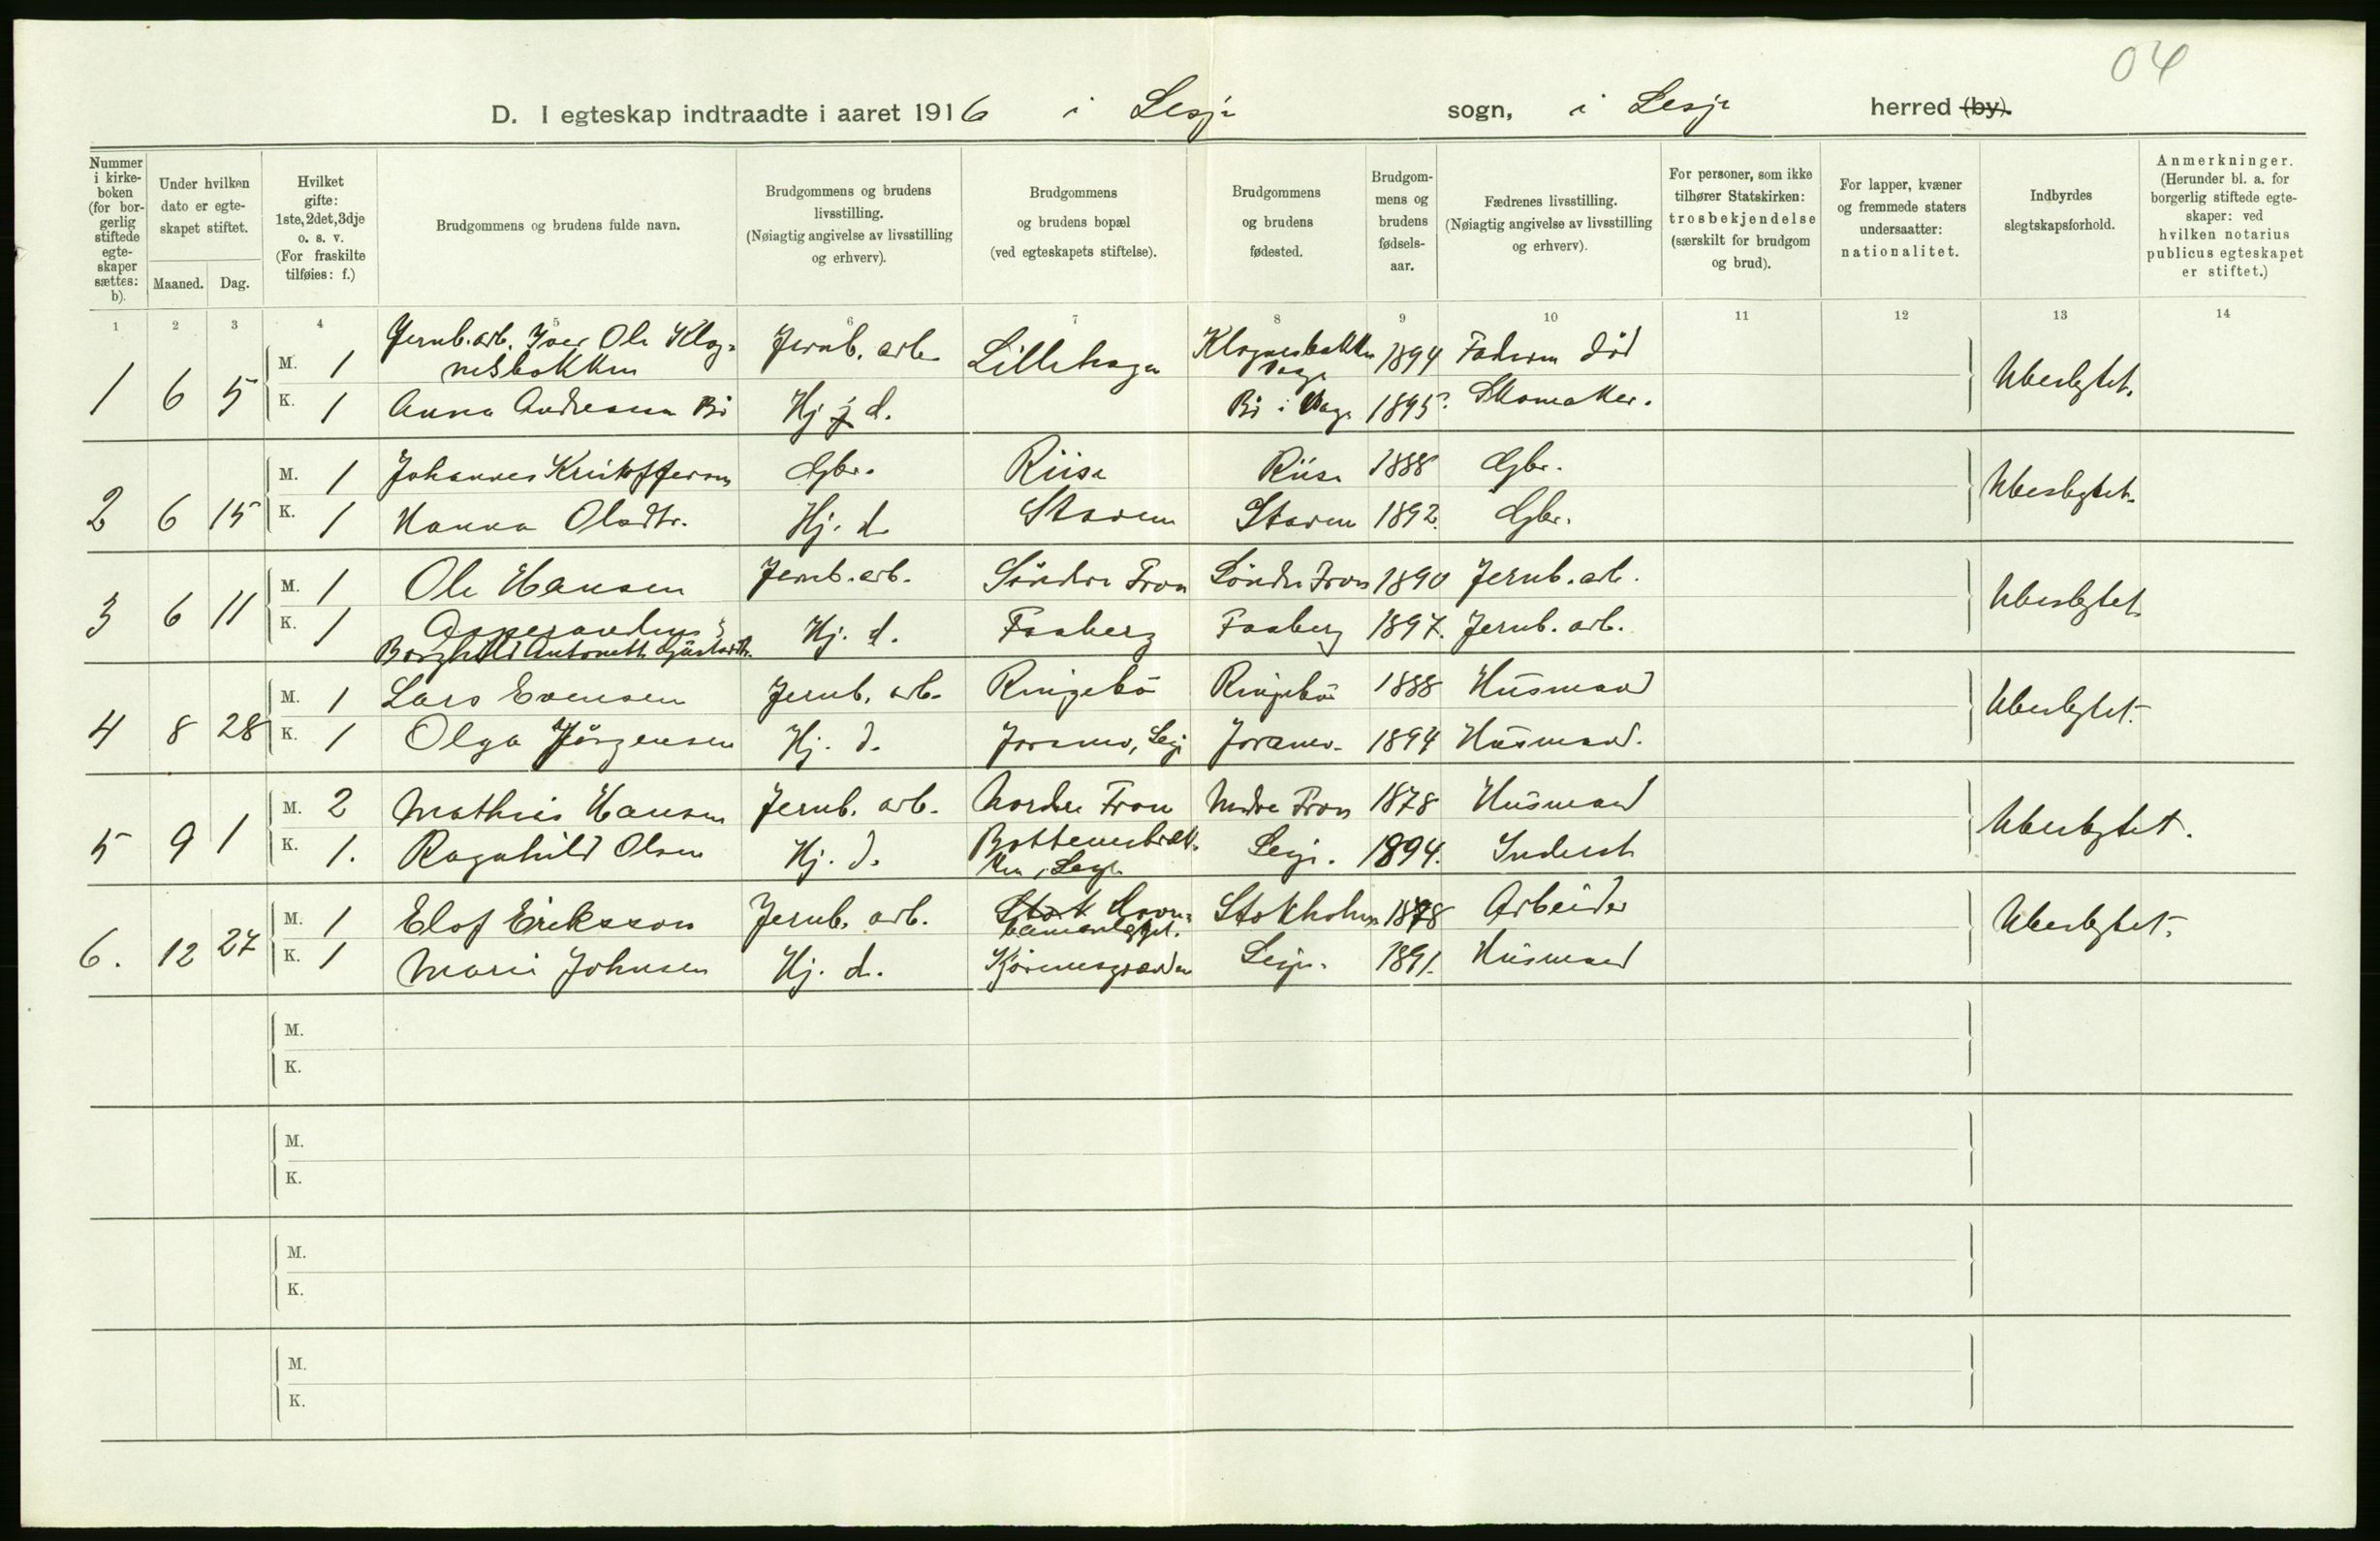 04
D. I egteskap indtraadte i aaret 1916 i Lesje sogn, i Lesje herred (by).
Nummer i kirkeboken (for borgerlig stiftede egteskaper sættes: b).
Under hvilken dato er egteskapet stiftet.
Maaned. Dag.
Hvilket gifte: 1ste, 2det, 3dje o. s. v. (For fraskilte tilføies: f.)
Brudgommens og brudens fulde navn.
Brudgommens og brudens livsstilling. (Nøiagtig angivelse av livsstilling og erhverv).
Brudgommens og brudens bopæl (ved egteskapets stiftelse).
Brudgommens og brudens fødested.
Brudgommens og brudens fødselsaar.
Fædrenes livsstilling. (Nøiagtig angivelse av livsstilling og erhverv).
For personer, som ikke tilhører Statskirken: trosbekjendelse (særskilt for brudgom og brud).
For lapper, kvæner og fremmede staters undersaatter: nationalitet.
Indbyrdes slegtskapsforhold.
Anmerkninger. (Herunder bl. a. for borgerlig stiftede egteskaper: ved hvilken notarius publicus egteskapet er stiftet.)
1 2 3 4 5 6 7 8 9 10 11 12 13 14
1 6 5 M. 1 Jernb. arb. Iver Ole Klognesbakken Jernb. arb. Lillehaga Klognesbakken Vaage 1894 Faderen död Ubeslegtet.
K. 1 Anna Andresen Bö Hj. d. Bö i Vaage 1895. Skomaker.
2 6 15 M. 1 Johannes Kristoffersen Gbr. Riise Riise 1888 Gbr. Ubeslegtet.
K. 1 Hanna Olsdtr. Hj. d. Stavem Stavem 1892. Gbr.
3 6 11 M. 1 Ole Hansen Jernb. arb. Söndre Fron Söndre Fron 1890 Jernb. arb. Ubeslegtet.
K. 1 Borghild Antonette Hj. d. Faaberg Faaberg 1897. Jernb. arb.
4 8 28 M. 1 Lars Evensen Jernb. arb. Ringebö Ringebö 1888 Husmand Ubeslegtet.
K. 1 Olga Jörgensen Hj. d. Joramo, Lesje Joramo. 1894 Husmand.
5 9 1 M. 2 Mathias Hansen Jernb. arb. Nordre Fron Nordre Fron 1878 Husmand Ubeslegtet.
K. 1. Ragnhild Olsen Hj. d. Bottemsbrækken i Lesje Lesje. 1894. Inderst
6. 12 27 M. 1 Elof Eriksson Jernb. arb. Stokholm 1878 Arbeider Ubeslegtet.
K. 1 Marie Johnsen Hj. d. Kjöremsgrænden Lesje. 1891. Husmand
M.
K.
M.
K.
M.
K.
M.
K.